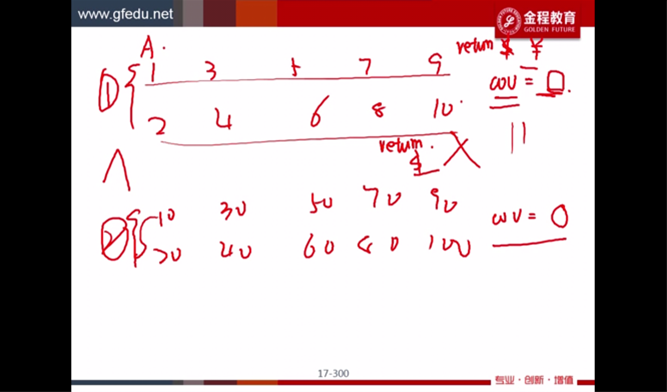 www.gfedu.net
金程教育
GOLDEN FUTURE
A.
return $ ¥
① 1 3 5 7 9 cov = 0.
2 4 6 8 10.
return.
② 10 30 50 70 90 cov = 0
20 40 60 80 100
17-300
专业·创新·增值